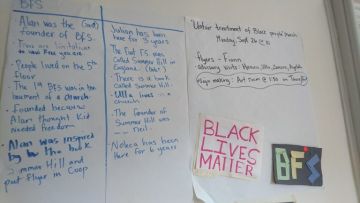 BFS
Alan was the (last)
founder of BFS.
Time are limitations
on how Free you are
People lived on the 5th
Floor
The 1st BFS was in the
basement of a church
Founded because
Alan thought kid
needed freedom
Alan was inspired
by the book
Summer Hill and
put flyer in Coop
Julian has been
here for 3 years
The First FS was
called Summer Hill in
England
There is a book
called Summer Hill
Ulla lives in a
church
The founder of
Summer Hill was
Neil
Noleca has been
here for 6 years
"Unfair treatment of Black people" March
Monday, Sept 26 @ 10
flyers - Fionn
sign making: Art room @ 1:30 on
BLACK
LIVES
MATTER
BFS